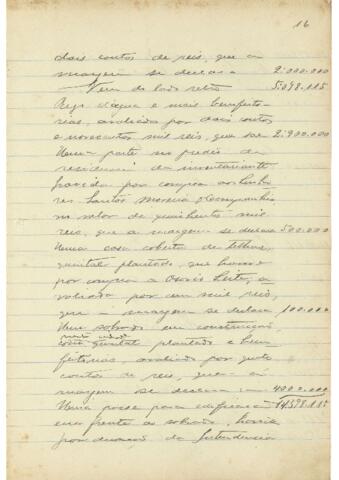 16
dois contos de reis, que a
margem se declara 2:000.000
Vem do lado retro 5:098.115
Rego d'agua e mais bemfeito-
rias, avaliados por dois contos
e novecentos mil reis, que sae 2:900.000
Uma parte no predio da
residencia da inventariante
havida por compra aos
res Santos Moreira & Companhia
no valor de quinhentos mil
reis, que a margem se declara 500.000
Uma casa coberta de telhas,
quintal plantado, que houve
por compra a Osorio Leite, a
valiada por cem mil reis,
que a margem se declara 100.000
Um sobrado em construcção
quintal plantado e bem
feitorias, avaliado por quatro
contos de reis, que a
margem se declara 4000.000
Uma posse para edificação 14:598.115
em frente ao sobrado, havida
por doação da Intendencia